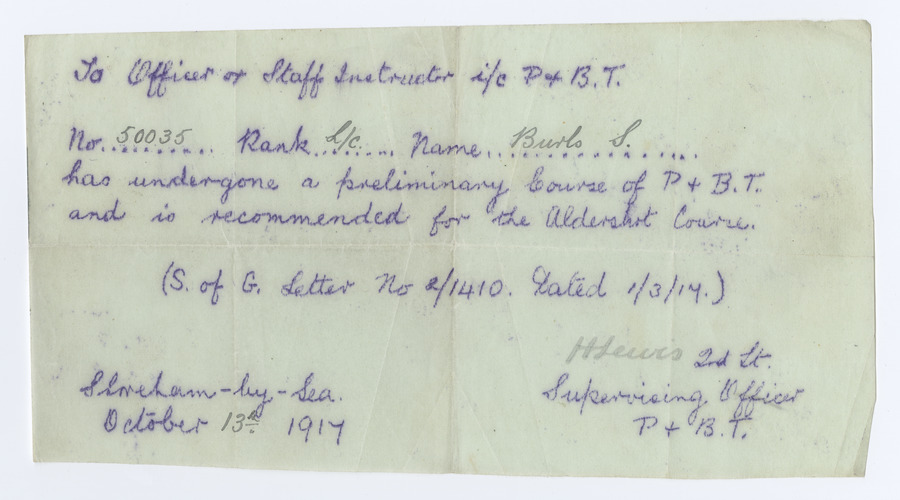 To Officer or Staff Instructor i/c P & B.T.
No. 50035 Rank L/C Name Burls S.
has undergone a preliminary Course of P & B.T.
and is recommended for the Aldershot Course.
(S. of G. Letter No 2/1410. Dated 1/3/17.)
H Lewis 2nd Lt.
Shoreham-by-Sea. Supervising Officer
October 13th 1917 P & B.T.